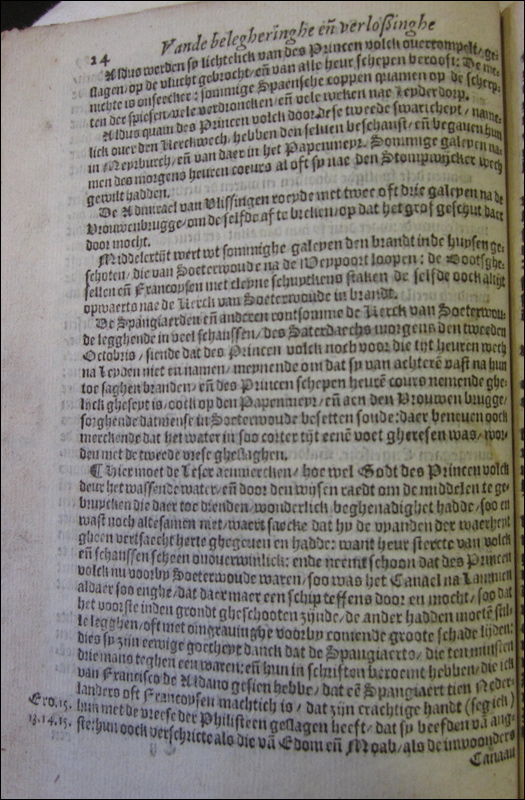 Vande belegheringhe eñ verlossinghe
24
Aldus werden so lichtelick van des Princen volck overrompelt/ ge-
slagen/ op de vlucht gebrocht/ eñ van alle heur schepen berooft: De me-
nichte is onseecker: sommige Spaensche coppen quamen op de scherp-
ten der spiesen/ vele verdroncken/ eñ vele weken nae Leyderdorp.
Aldus quam des Princen volck door dese tweede swaricheyt/ name-
lick over den Kerckwech/ hebben den selven beschanst/ eñ begaven hun
in Meyrburch/ eñ van daer in het Papenmeyr. Sommige galeyen na-
men des morgens heuren coeurs al oft sy nae den Stompwijcker wech
gewilt hadden.
De Admirael van Vlissingen roeyde met twee oft drie galeyen na de
Vrouwenbrugge/ om de selfde af te breken/ op dat het grof geschut daer
door mocht.
Middelertijt wert wt sommighe galeyen den brandt in de huysen ge-
schoten/ die van Soeterwoude na de Weypoort loopen: de Bootsghe-
sellen eñ Francoysen met cleyne schuytkens staken de selfde oock altijt
opwaerts nae de Kerck van Soeterwoude in brandt.
De Spangiaerden eñ anderen rontsomme de Kerck van Soeterwou-
de legghende in veel schanssen/ des Saterdaechs morgens den tweeden
Octobris/ siende dat des Princen volck noch voor die tijt heuren wech
na Leyden niet en namen/ meynende om dat sy van achterē vast na hun
toe saghen branden/ eñ des Princen schepen heurē cours nemende ghe-
lijck gheseyt is/ oock op den Papenmeyr/ eñ aen den Vrouwen brugge/
sorghende datmense in Soeterwoude besetten soude: daer beneven oock
merckende dat het water in soo corter tijt eenē voet gheresen was/ wor-
den met de tweede vrese gheslaghen.
¶ Hier moet de Leser aenmercken/ hoe wel Godt des Princen volck
deur het wassende water/ eñ door den wijsen raedt om de middelen te ge-
bruycken die daer toe dienden/ wonderlick beghenadighet hadde/ soo en
wast noch altesamen met/ waert saecke dat hy de vyanden der waerheyt
gheen vertsaecht herte ghegeven en hadde: want heur stercte van volck
eñ schanssen scheen onoverwinlick: ende neemt schoon dat des Princen
volck nu voorby Soeterwoude waren/ soo was het Canael na Lammen
aldaer soo enghe/ dat daer maer een schip teffens door en mocht/ soo dat
het voorste inden grondt gheschooten zijnde/ de ander hadden moetē stil-
le legghen/ oft met omgravinghe voorby comende groote schade lijden:
dies sy zijn eewige goetheyt danck dat de Spangiaerts/ die ten minsten
drie mans teghen een waren: eñ hun in schriften beroemt hebben/ die ick
van Francisco de Aldano gesien hebbe/ dat eē Spangiaert tien Neder-
landers oft Francoysen machtich is/ dat zijn crachtige handt (seg ich)
Exo. 15. hun met de vreese der Philisteen geslagen heeft/ dat sy beefden vā ang-
13.14.15. ste: hun oock verschricte als die vā Edom eñ Moab/ als de inwoonders
Canaan